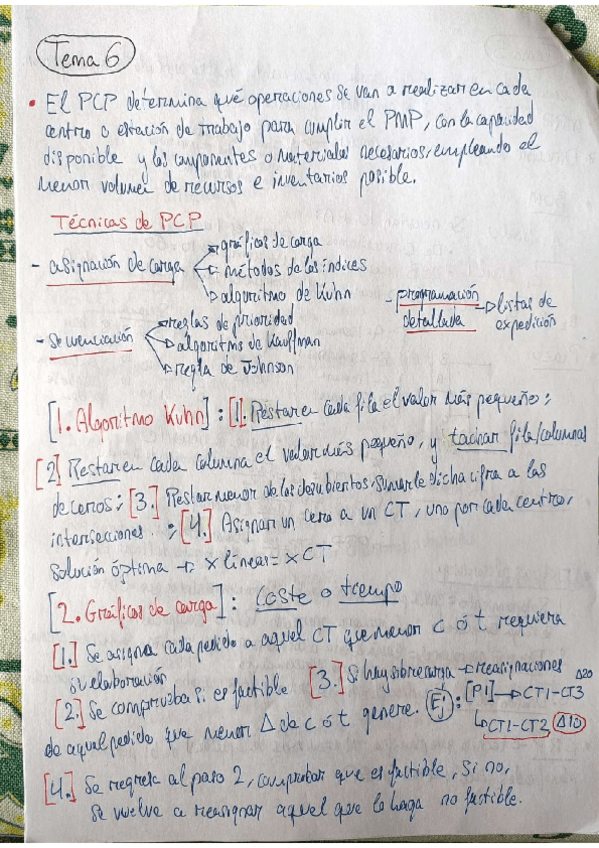 Tema 6
• El PCP determina qué operaciones se van a realizar en cada
centro o estación de trabajo para cumplir el PMP, con la capacidad
disponible y los componentes o materiales necesarios, empleando el
menor volumen de recursos e inventarios posible.
Técnicas de PCP
- asignación de carga
gráficos de carga
métodos de los índices
algoritmo de Kuhn
- programación detallada → listas de expedición
- Secuenciación
reglas de prioridad
algoritmo de Kauffman
regla de Johnson
[1. Algoritmo Kuhn] : [1.] Restar en cada fila el valor más pequeño;
[2] Restar en cada columna el valor más pequeño, y tachar filas/columnas
de ceros; [3.] Restar menor de los descubiertos, sumarle dicha cifra a las
intersecciones. ; [4.] Asignar un cero a un CT, uno por cada centro,
solución óptima → x líneas = x CT
[2. Gráficos de carga] : Coste o tiempo
[1.] Se asigna cada pedido a aquel CT que menor c ó t requiera
su elaboración
[2.] Se comprueba si es factible [3.] Si hay sobrecarga → reasignaciones
de aquel pedido que menor Δ de c ó t genere. Ej: [P1] → CT1-CT3 Δ20
↳ CT1-CT2 Δ10
[4.] Se regresa al paso 2, comprobar que es factible, si no,
se vuelve a reasignar aquel que lo haga no factible.